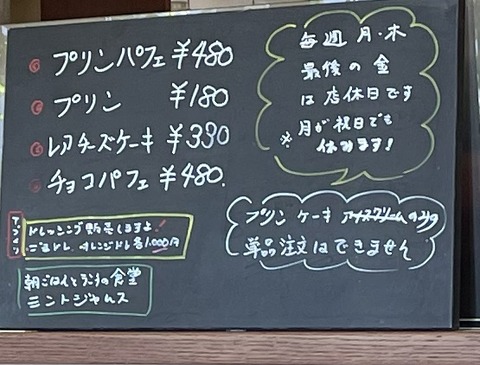 プリンパフェ ¥480
プリン ¥180
レアチーズケーキ ¥390
チョコパフェ ¥480.
毎週 月・木
最後の 金
は 店休日です
※月が祝日でも
休みます!
プリン ケーキ アイスクリームのみの
単品注文はできません
ドレッシング販売してますよ!
ごまドレ、オレンジドレ各1,000円
朝ごはんとランチの食堂
ミントジャムス